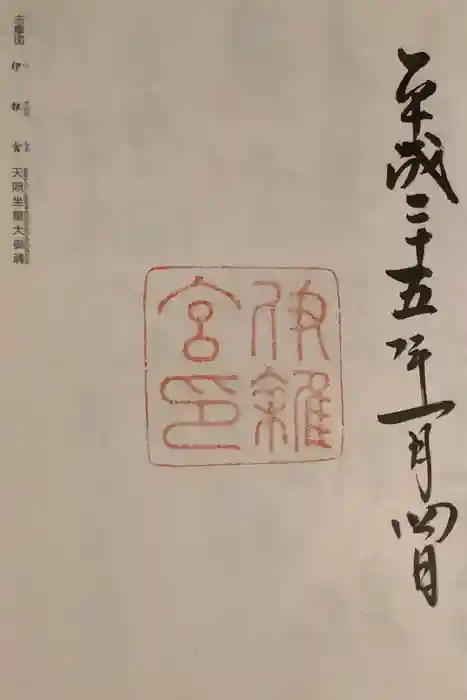 平成二十五年一月四日
伊雜
宮印
志摩国 伊雜宮 天照坐皇大御魂